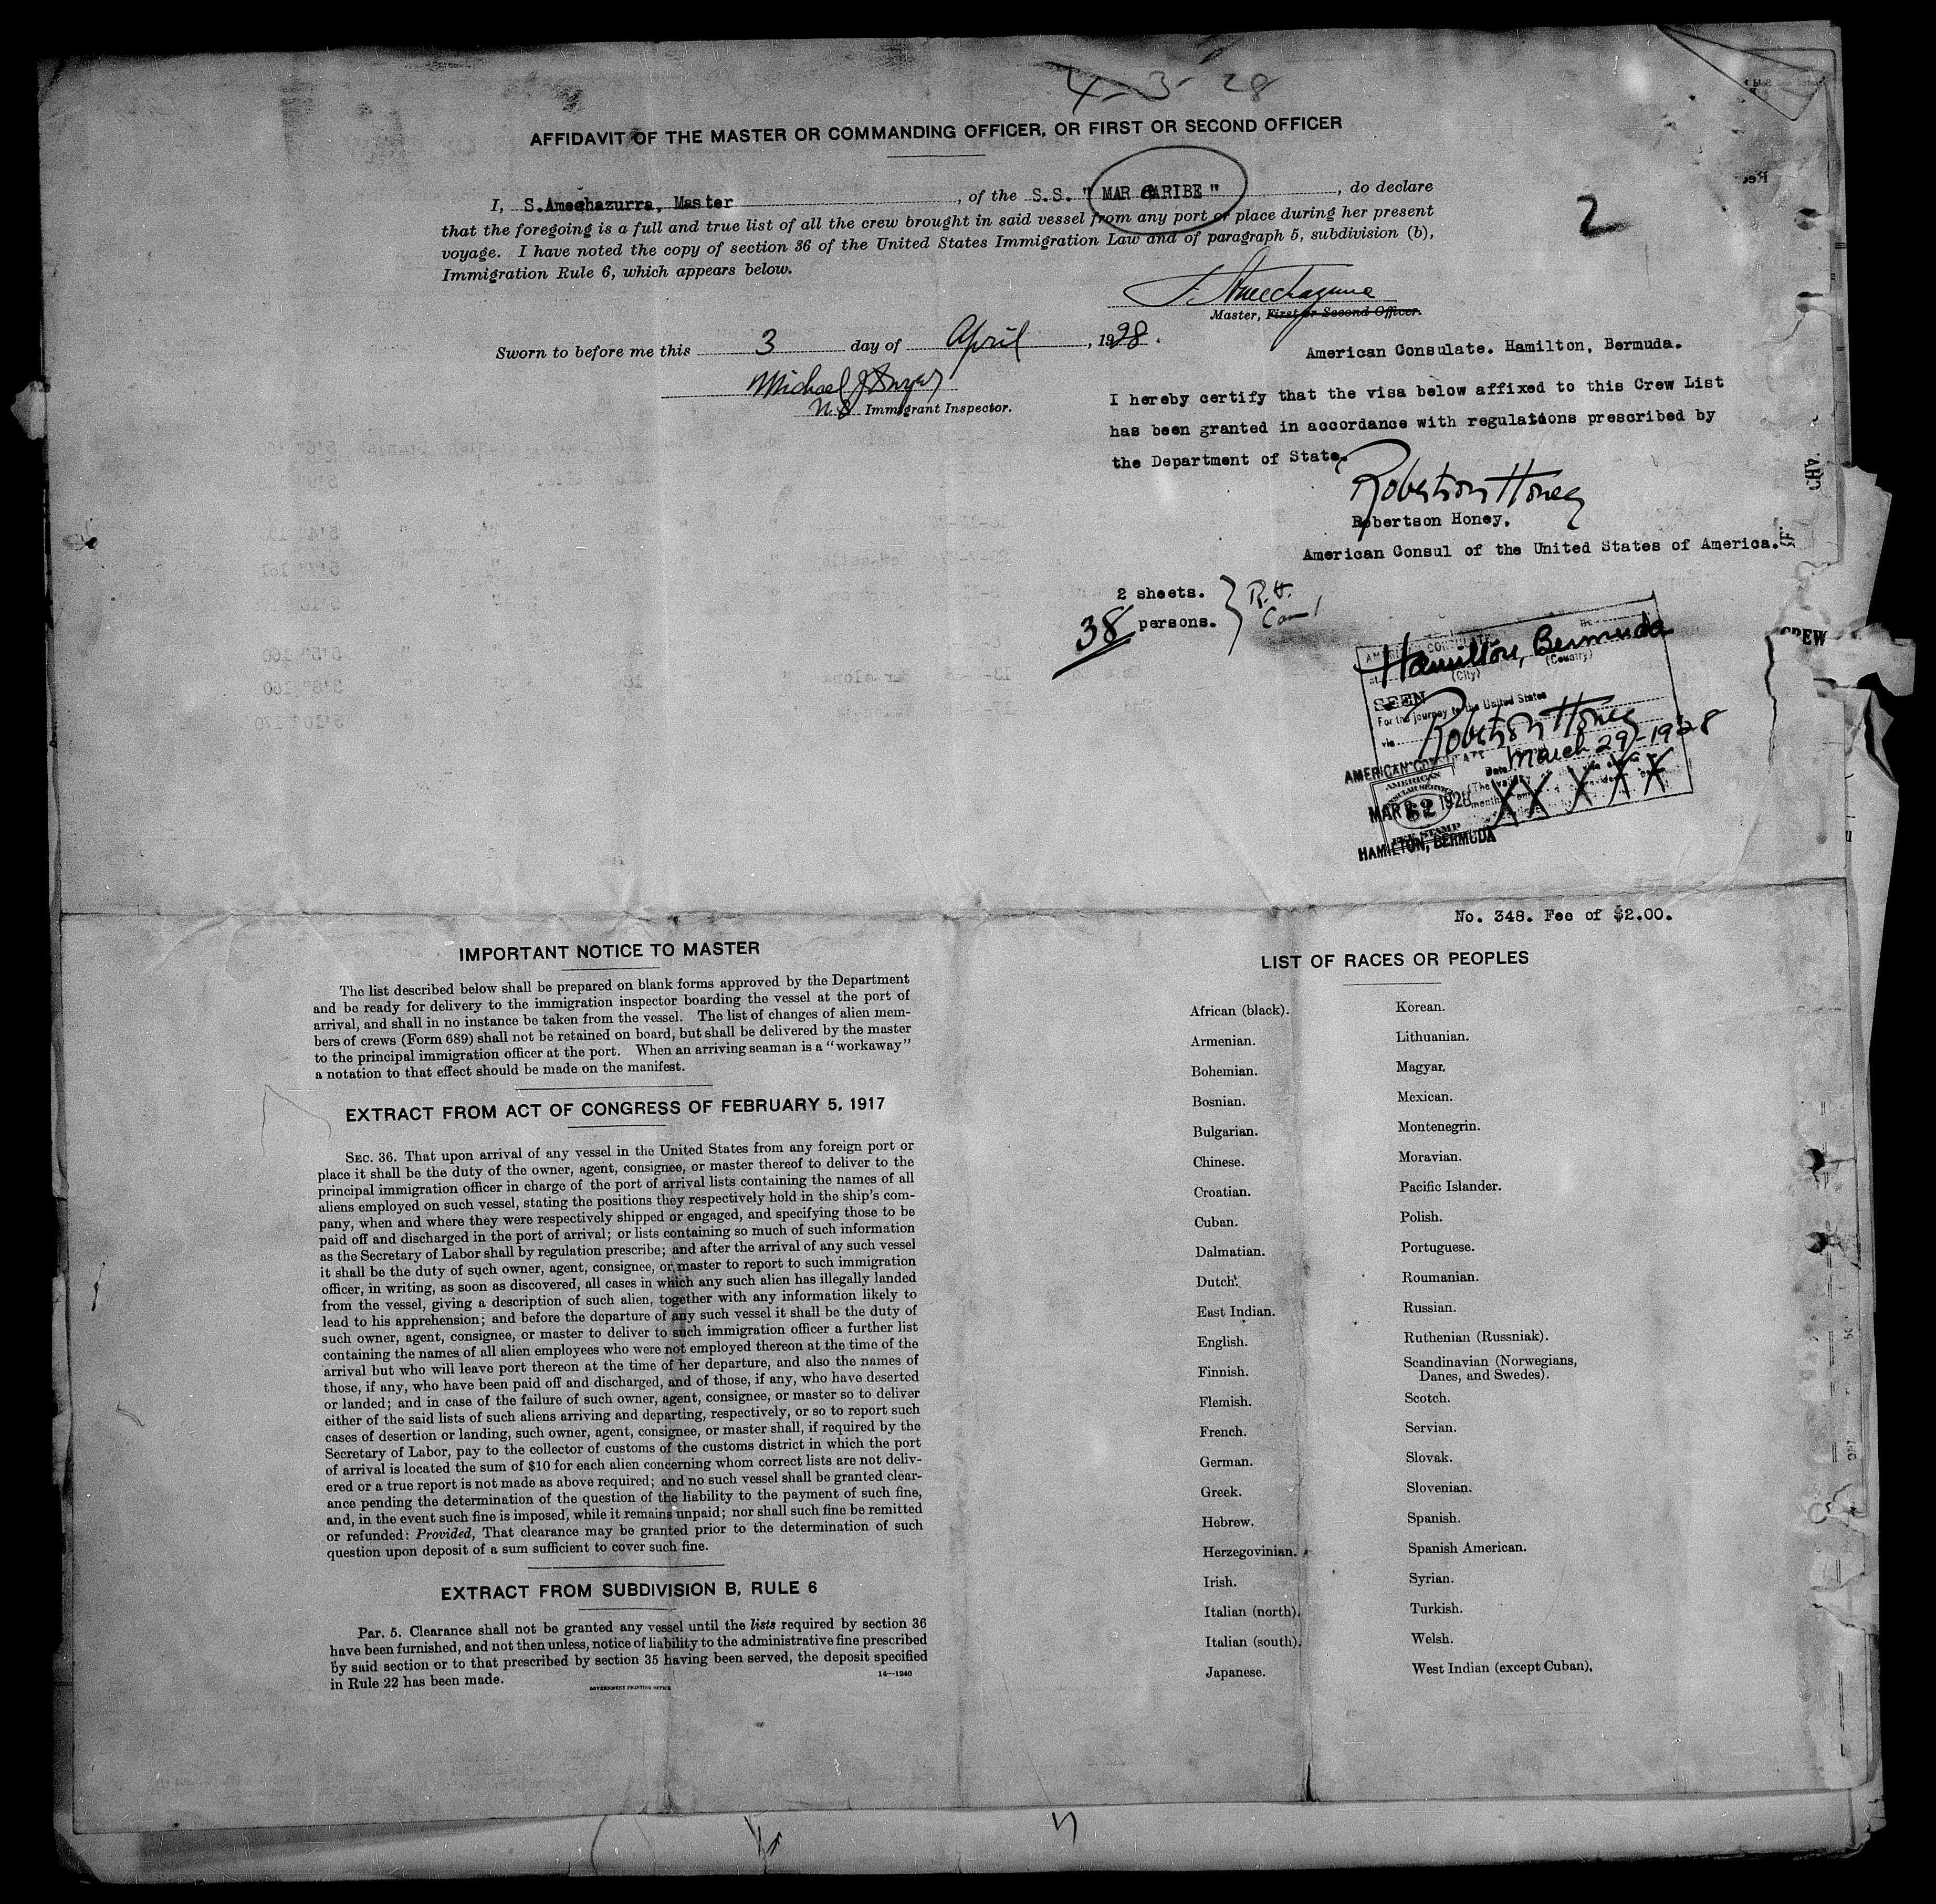 4-3-28
AFFIDAVIT OF THE MASTER OR COMMANDING OFFICER, OR FIRST OR SECOND OFFICER
I, S.Amechazurra, Master, of the S.S. "MAR CARIBE", do declare
that the foregoing is a full and true list of all the crew brought in said vessel from any port or place during her present
voyage. I have noted the copy of section 36 of the United States Immigration Law and of paragraph 5, subdivision (b),
Immigration Rule 6, which appears below.
2
Master, First or Second Officer.
Sworn to before me this 3 day of April, 1928.
Michael J
U.S. Immigrant Inspector.
American Consulate. Hamilton, Bermuda.
I hereby certify that the visa below affixed to this Crew List
has been granted in accordance with regulations prescribed by
the Department of State.
Robertson Honey
Robertson Honey,
American Consul of the United States of America.
2 sheets.
38 persons.
R.H.
CREW
AMERICAN CONSULATE
at Hamilton, Bermuda
(City) (Country)
SEEN
For the journey to the United States
via
Robertson Honey
Date March 29-1928
AMERICAN CONSULATE
AMERICAN
CONSULAR SERVICE
$2
FEE STAMP
MAR 1928
XX XXX
HAMILTON, BERMUDA
No. 348. Fee of $2.00.
IMPORTANT NOTICE TO MASTER
The list described below shall be prepared on blank forms approved by the Department
and be ready for delivery to the immigration inspector boarding the vessel at the port of
arrival, and shall in no instance be taken from the vessel. The list of changes of alien mem-
bers of crews (Form 689) shall not be retained on board, but shall be delivered by the master
to the principal immigration officer at the port. When an arriving seaman is a "workaway"
a notation to that effect should be made on the manifest.
EXTRACT FROM ACT OF CONGRESS OF FEBRUARY 5, 1917
SEC. 36. That upon arrival of any vessel in the United States from any foreign port or
place it shall be the duty of the owner, agent, consignee, or master thereof to deliver to the
principal immigration officer in charge of the port of arrival lists containing the names of all
aliens employed on such vessel, stating the positions they respectively hold in the ship's com-
pany, when and where they were respectively shipped or engaged, and specifying those to be
paid off and discharged in the port of arrival; or lists containing so much of such information
as the Secretary of Labor shall by regulation prescribe; and after the arrival of any such vessel
it shall be the duty of such owner, agent, consignee, or master to report to such immigration
officer, in writing, as soon as discovered, all cases in which any such alien has illegally landed
from the vessel, giving a description of such alien, together with any information likely to
lead to his apprehension; and before the departure of any such vessel it shall be the duty of
such owner, agent, consignee, or master to deliver to such immigration officer a further list
containing the names of all alien employees who were not employed thereon at the time of the
arrival but who will leave port thereon at the time of her departure, and also the names of
those, if any, who have been paid off and discharged, and of those, if any, who have deserted
or landed; and in case of the failure of such owner, agent, consignee, or master so to deliver
either of the said lists of such aliens arriving and departing, respectively, or so to report such
cases of desertion or landing, such owner, agent, consignee, or master shall, if required by the
Secretary of Labor, pay to the collector of customs of the customs district in which the port
of arrival is located the sum of $10 for each alien concerning whom correct lists are not deliv-
ered or a true report is not made as above required; and no such vessel shall be granted clear-
ance pending the determination of the question of the liability to the payment of such fine,
and, in the event such fine is imposed, while it remains unpaid; nor shall such fine be remitted
or refunded: Provided, That clearance may be granted prior to the determination of such
question upon deposit of a sum sufficient to cover such fine.
EXTRACT FROM SUBDIVISION B, RULE 6
Par. 5. Clearance shall not be granted any vessel until the lists required by section 36
have been furnished, and not then unless, notice of liability to the administrative fine prescribed
by said section or to that prescribed by section 35 having been served, the deposit specified
in Rule 22 has been made.
14—1240
GOVERNMENT PRINTING OFFICE
LIST OF RACES OR PEOPLES
African (black).
Armenian.
Bohemian.
Bosnian.
Bulgarian.
Chinese.
Croatian.
Cuban.
Dalmatian.
Dutch.
East Indian.
English.
Finnish.
Flemish.
French.
German.
Greek.
Hebrew.
Herzegovinian.
Irish.
Italian (north).
Italian (south).
Japanese.
Korean.
Lithuanian.
Magyar.
Mexican.
Montenegrin.
Moravian.
Pacific Islander.
Polish.
Portuguese.
Roumanian.
Russian.
Ruthenian (Russniak).
Scandinavian (Norwegians,
Danes, and Swedes).
Scotch.
Servian.
Slovak.
Slovenian.
Spanish.
Spanish American.
Syrian.
Turkish.
Welsh.
West Indian (except Cuban).